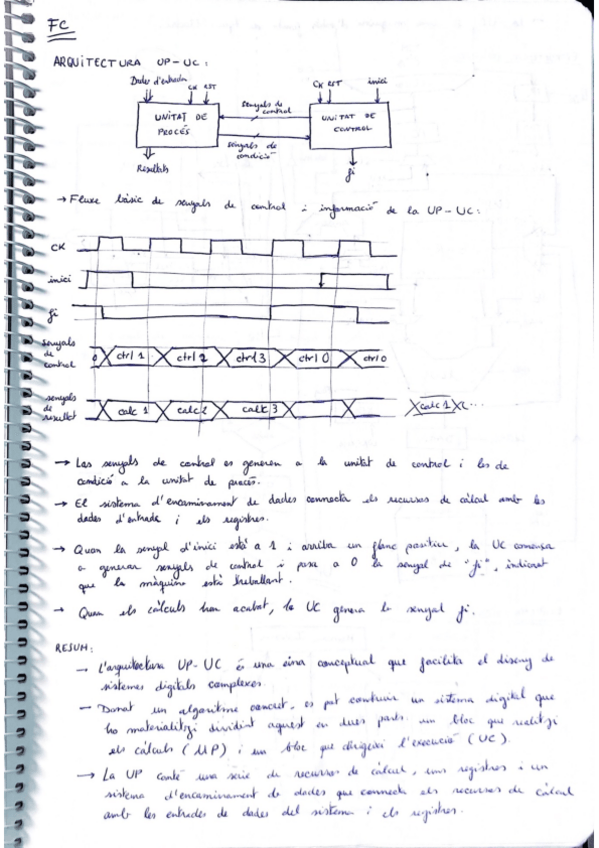 FC
ARQUITECTURA UP-UC:
Dades d'entrada
CK RST
CK RST
inici
UNITAT DE
PROCÉS
senyals de
control
senyals de
condició
UNITAT DE
CONTROL
Resultats
fi
→ Fluxe bàsic de senyals de control i informació de la UP-UC:
CK
inici
fi
senyals
de
control
0 ctrl 1 ctrl 2 ctrl 3 ctrl 0 ctrl 0
senyals
de
resultat
calc 1 calc 2 calc 3
calc 1
→ Les senyals de control es generen a la unitat de control i les de
condició a la unitat de procés.
→ El sistema d'encaminament de dades connecta els recursos de càlcul amb les
dades d'entrada i els registres.
→ Quan la senyal d'inici està a 1 i arriba un flanc positiu, la UC comença
a generar senyals de control i posa a 0 la senyal de "fi", indicant
que la màquina està treballant.
→ Quan els càlculs han acabat, la UC genera la senyal fi.
RESUM:
→ L'arquitectura UP-UC és una eina conceptual que facilita el disseny de
sistemes digitals complexes.
→ Donat un algoritme concret, es pot construir un sistema digital que
ho materialitzi dividint aquest en dues parts: un bloc que realitzi
els càlculs (UP) i un bloc que dirigeixi l'execució (UC).
→ La UP conté una serie de recursos de càlcul, uns registres i un
sistema d'encaminament de dades que connecta els recursos de càlcul
amb les entrades de dades del sistema i els registres.